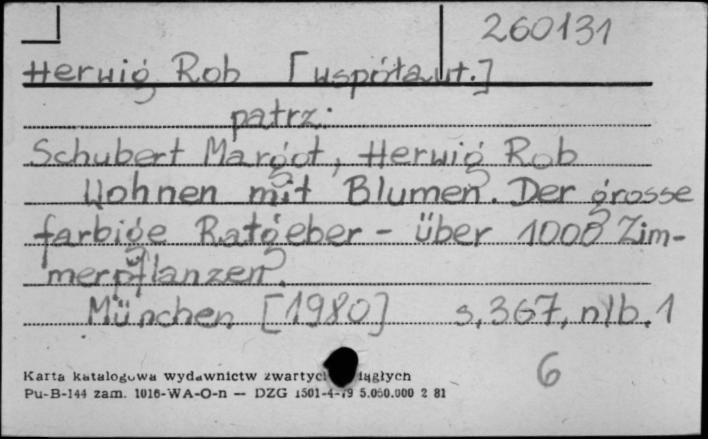 260131
Herwig Rob [współaut.]
patrz:
Schubert Margot, Herwig Rob
Wohnen mit Blumen. Der grosse
farbige Ratgeber - über 1000 Zim-
merpflanzen.
München [1980] s. 367, nlb. 1
6
Karta katalogowa wydawnictw zwartych ciągłych
Pu-B-144 zam. 1016-WA-O-n — DZG 1501-4-79 5.050.000 2 81